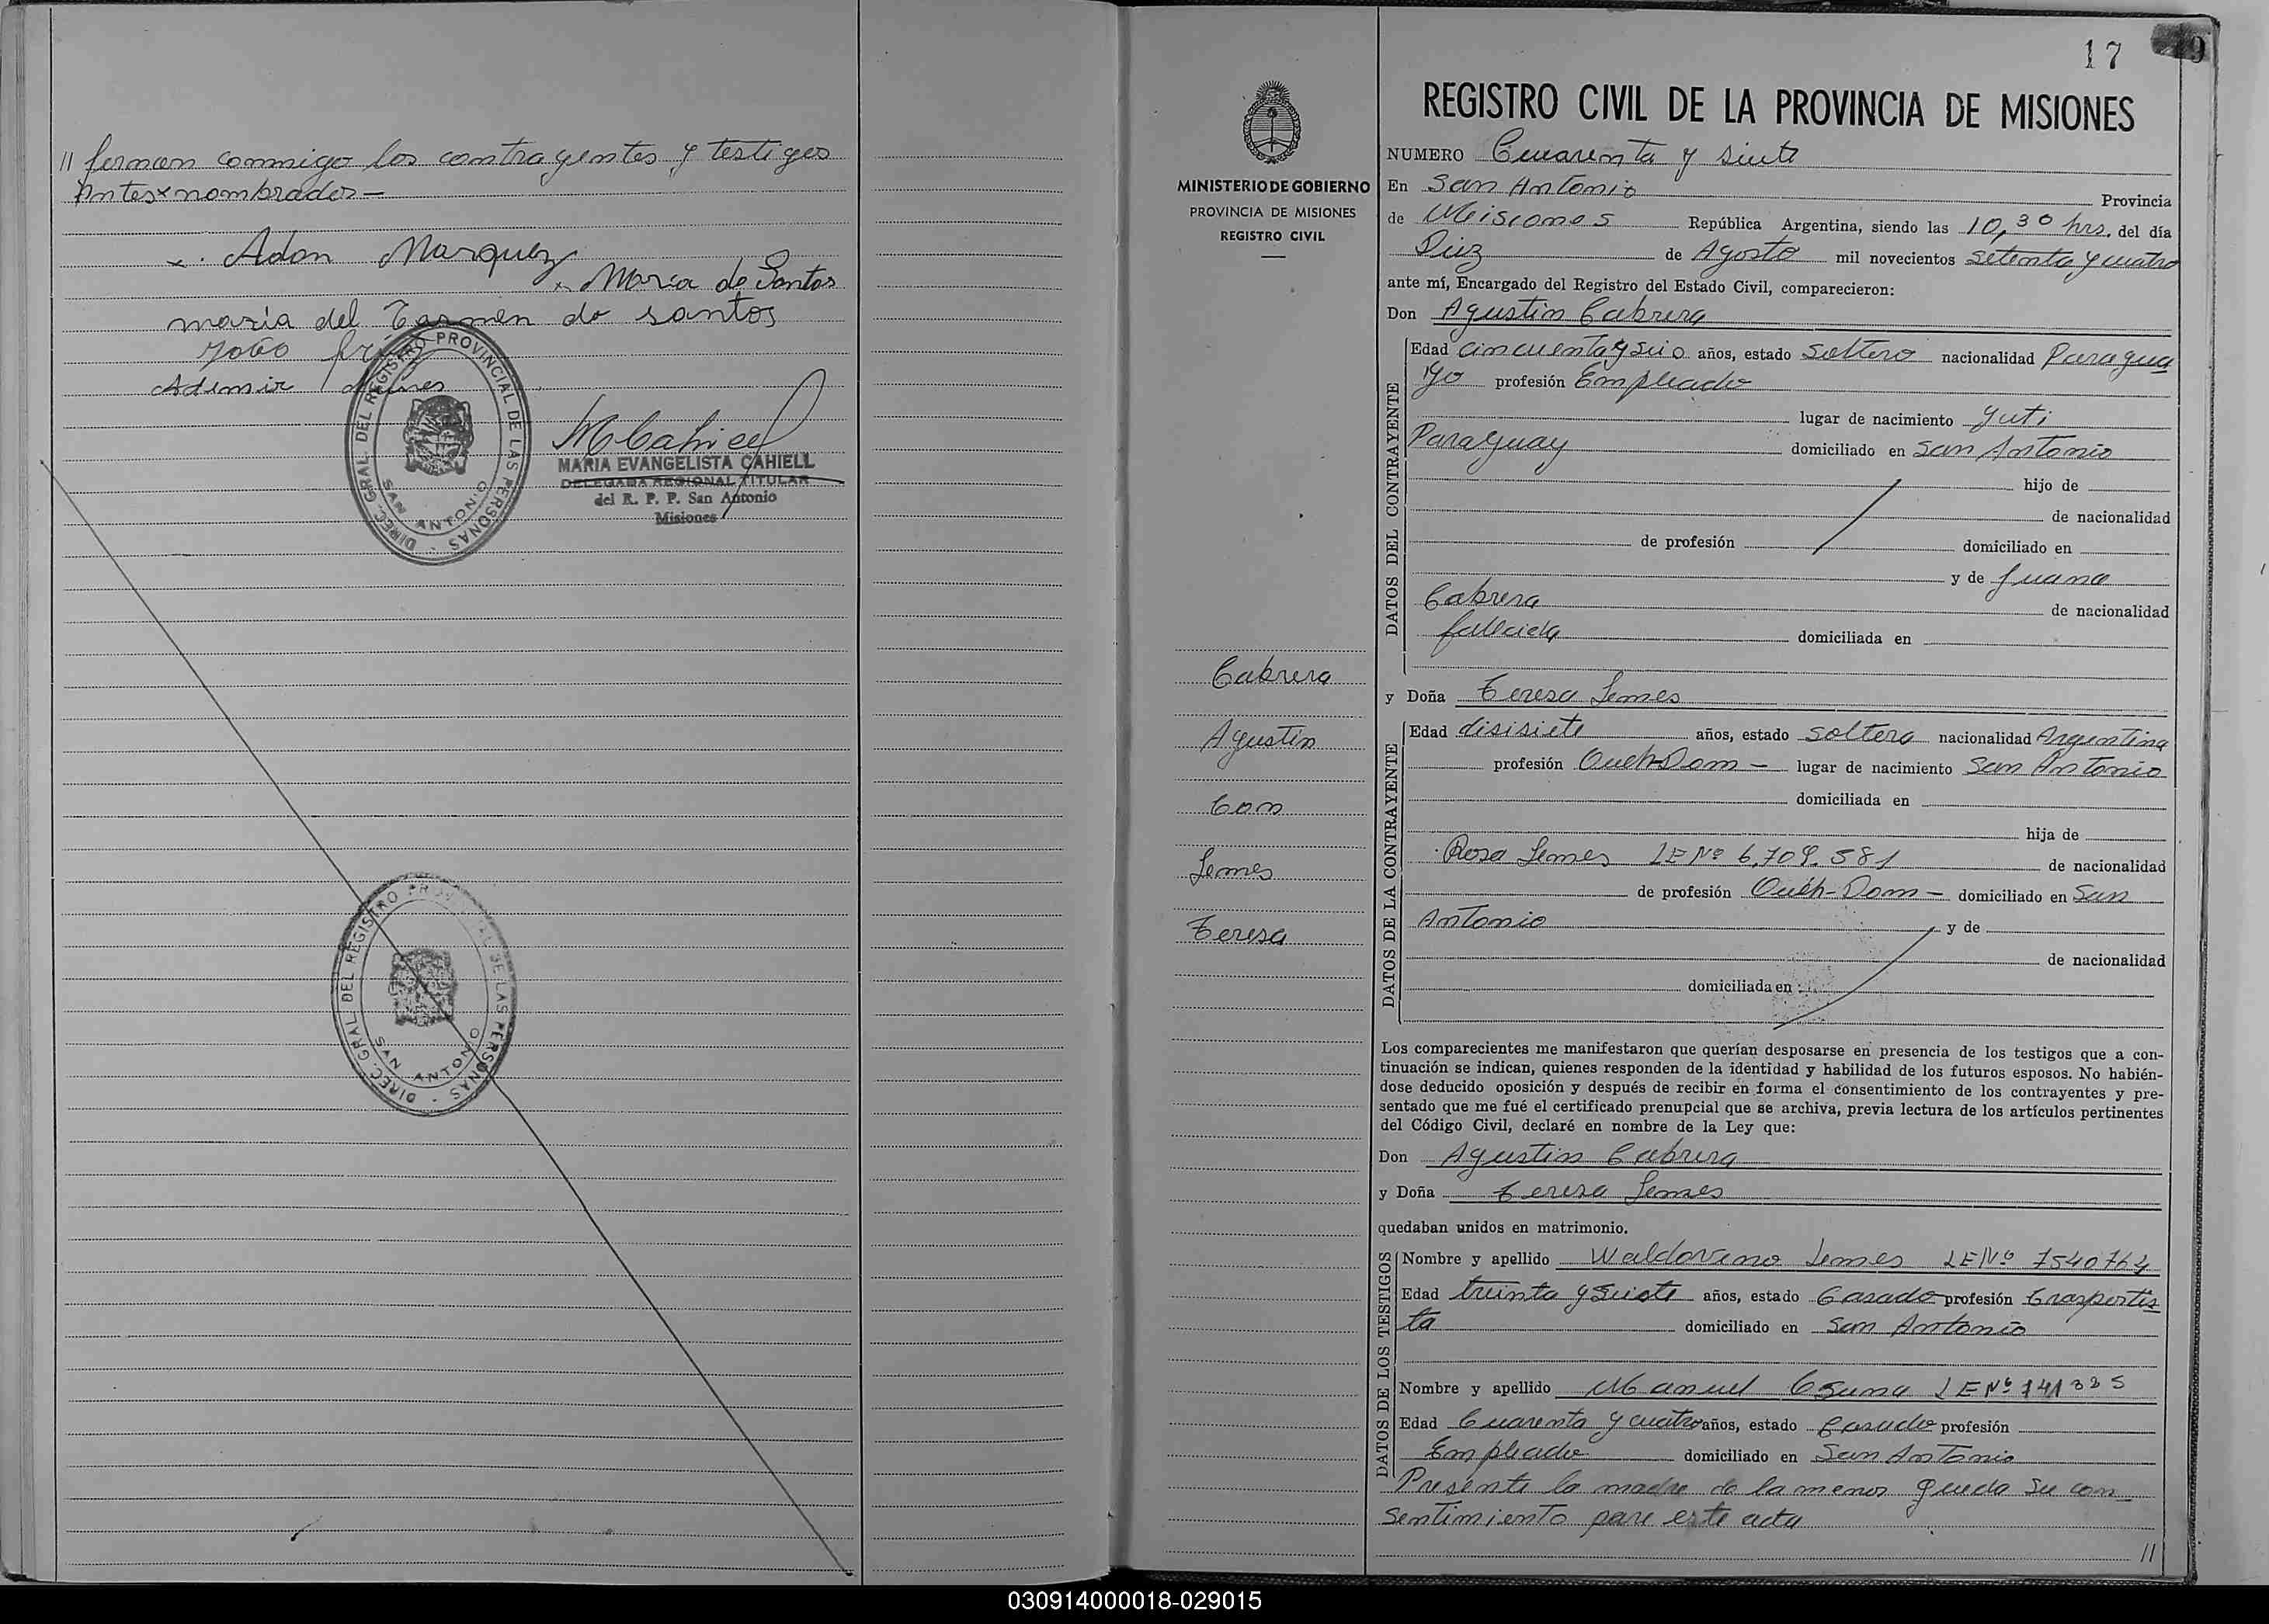 // firman conmigo los contrayentes y testigos
Antes nombrados -
x. Adan Marquez
x. Maria do Santos
maria del Carmen do santos
Ademir
DIREC. GRAL. DEL REGISTRO PROVINCIAL DE LAS PERSONAS
SAN ANTONIO
MARIA EVANGELISTA CAHIELL
DELEGADA REGIONAL TITULAR
del R. P. P. San Antonio
Misiones
DIREC. GRAL. DEL REGISTRO PROVINCIAL DE LAS PERSONAS
SAN ANTONIO
17
9
MINISTERIO DE GOBIERNO
PROVINCIA DE MISIONES
REGISTRO CIVIL
Cabrera
Agustin
Con
Lemes
Teresa
REGISTRO CIVIL DE LA PROVINCIA DE MISIONES
NUMERO Cuarenta y siete
En San Antonio Provincia
de Misiones República Argentina, siendo las 10,30 hrs. del día
Diez de Agosto mil novecientos setenta y cuatro
ante mí, Encargado del Registro del Estado Civil, comparecieron:
Don Agustin Cabrera
DATOS DEL CONTRAYENTE
Edad cincuenta y años, estado Soltero nacionalidad Paragua
yo profesión Empleado
lugar de nacimiento Yuti
Paraguay domiciliado en San Antonio
hijo de
de nacionalidad
de profesión domiciliado en
y de Juana
Cabrera de nacionalidad
fallecida domiciliada en
y Doña Teresa Lemes
DATOS DE LA CONTRAYENTE
Edad disisiete años, estado soltera nacionalidad Argentina
profesión Queh-Dom - lugar de nacimiento San Antonio
domiciliada en
hija de
Rosa Lemes LE Nº 6.709.581 de nacionalidad
de profesión Queh-Dom - domiciliado en San
Antonio y de
de nacionalidad
domiciliada en
Los comparecientes me manifestaron que querían desposarse en presencia de los testigos que a con-
tinuación se indican, quienes responden de la identidad y habilidad de los futuros esposos. No habién-
dose deducido oposición y después de recibir en forma el consentimiento de los contrayentes y pre-
sentado que me fué el certificado prenupcial que se archiva, previa lectura de los artículos pertinentes
del Código Civil, declaré en nombre de la Ley que:
Don Agustin Cabrera
y Doña Teresa Lemes
quedaban unidos en matrimonio.
DATOS DE LOS TESTIGOS
Nombre y apellido Waldovino Lemes LE Nº 7540764
Edad treinta y siete años, estado Casado profesión Trasportis
ta domiciliado en San Antonio
Nombre y apellido Manuel Osuna LE Nº
Edad Cuarenta y cuatro años, estado Casado profesión
Empleado domiciliado en San Antonio
Presente la madre de la menor queda su con
sentimiento para este acta
//
030914000018-029015